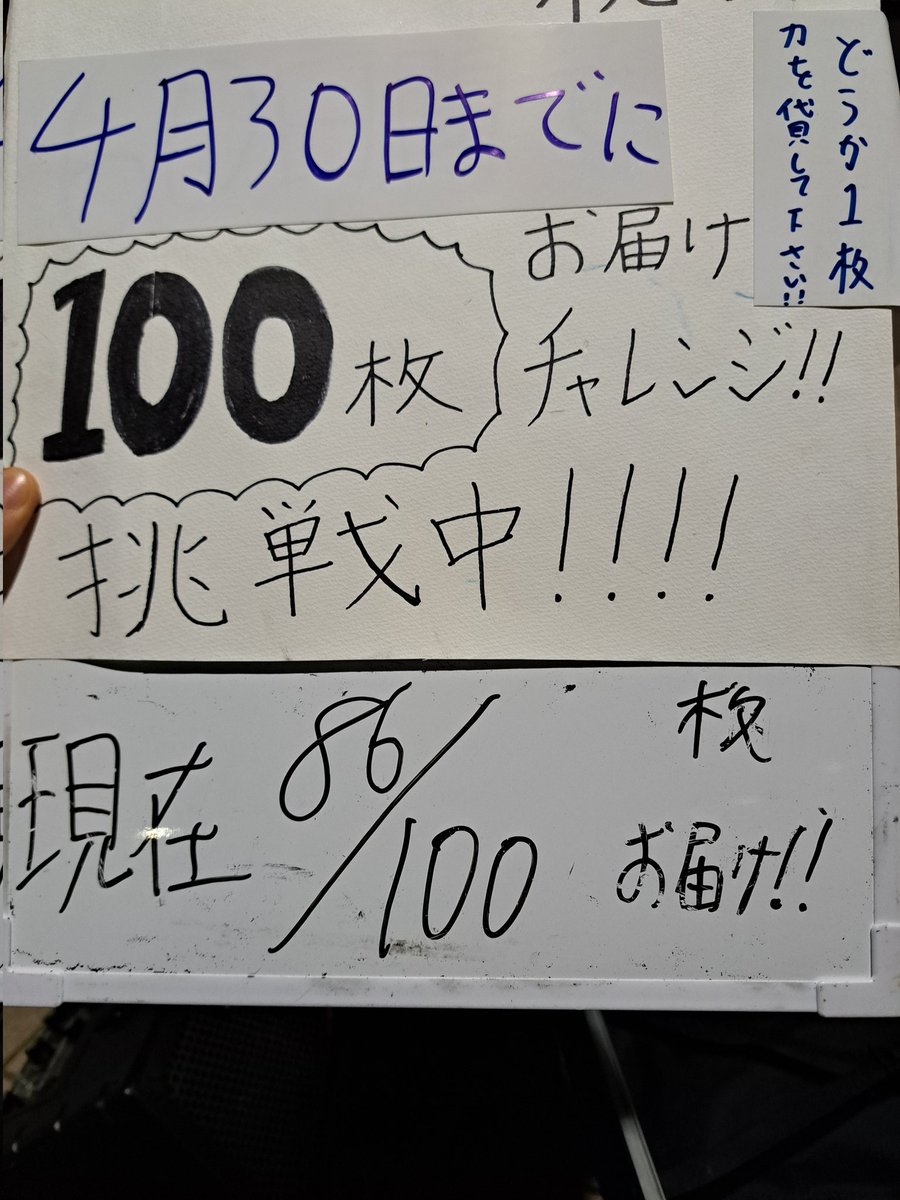 4月30日までに
どうか1枚
力を貸して下さい!!
100枚
お届け
チャレンジ!!
挑戦中!!!!
現在 86/100 枚
お届け!!